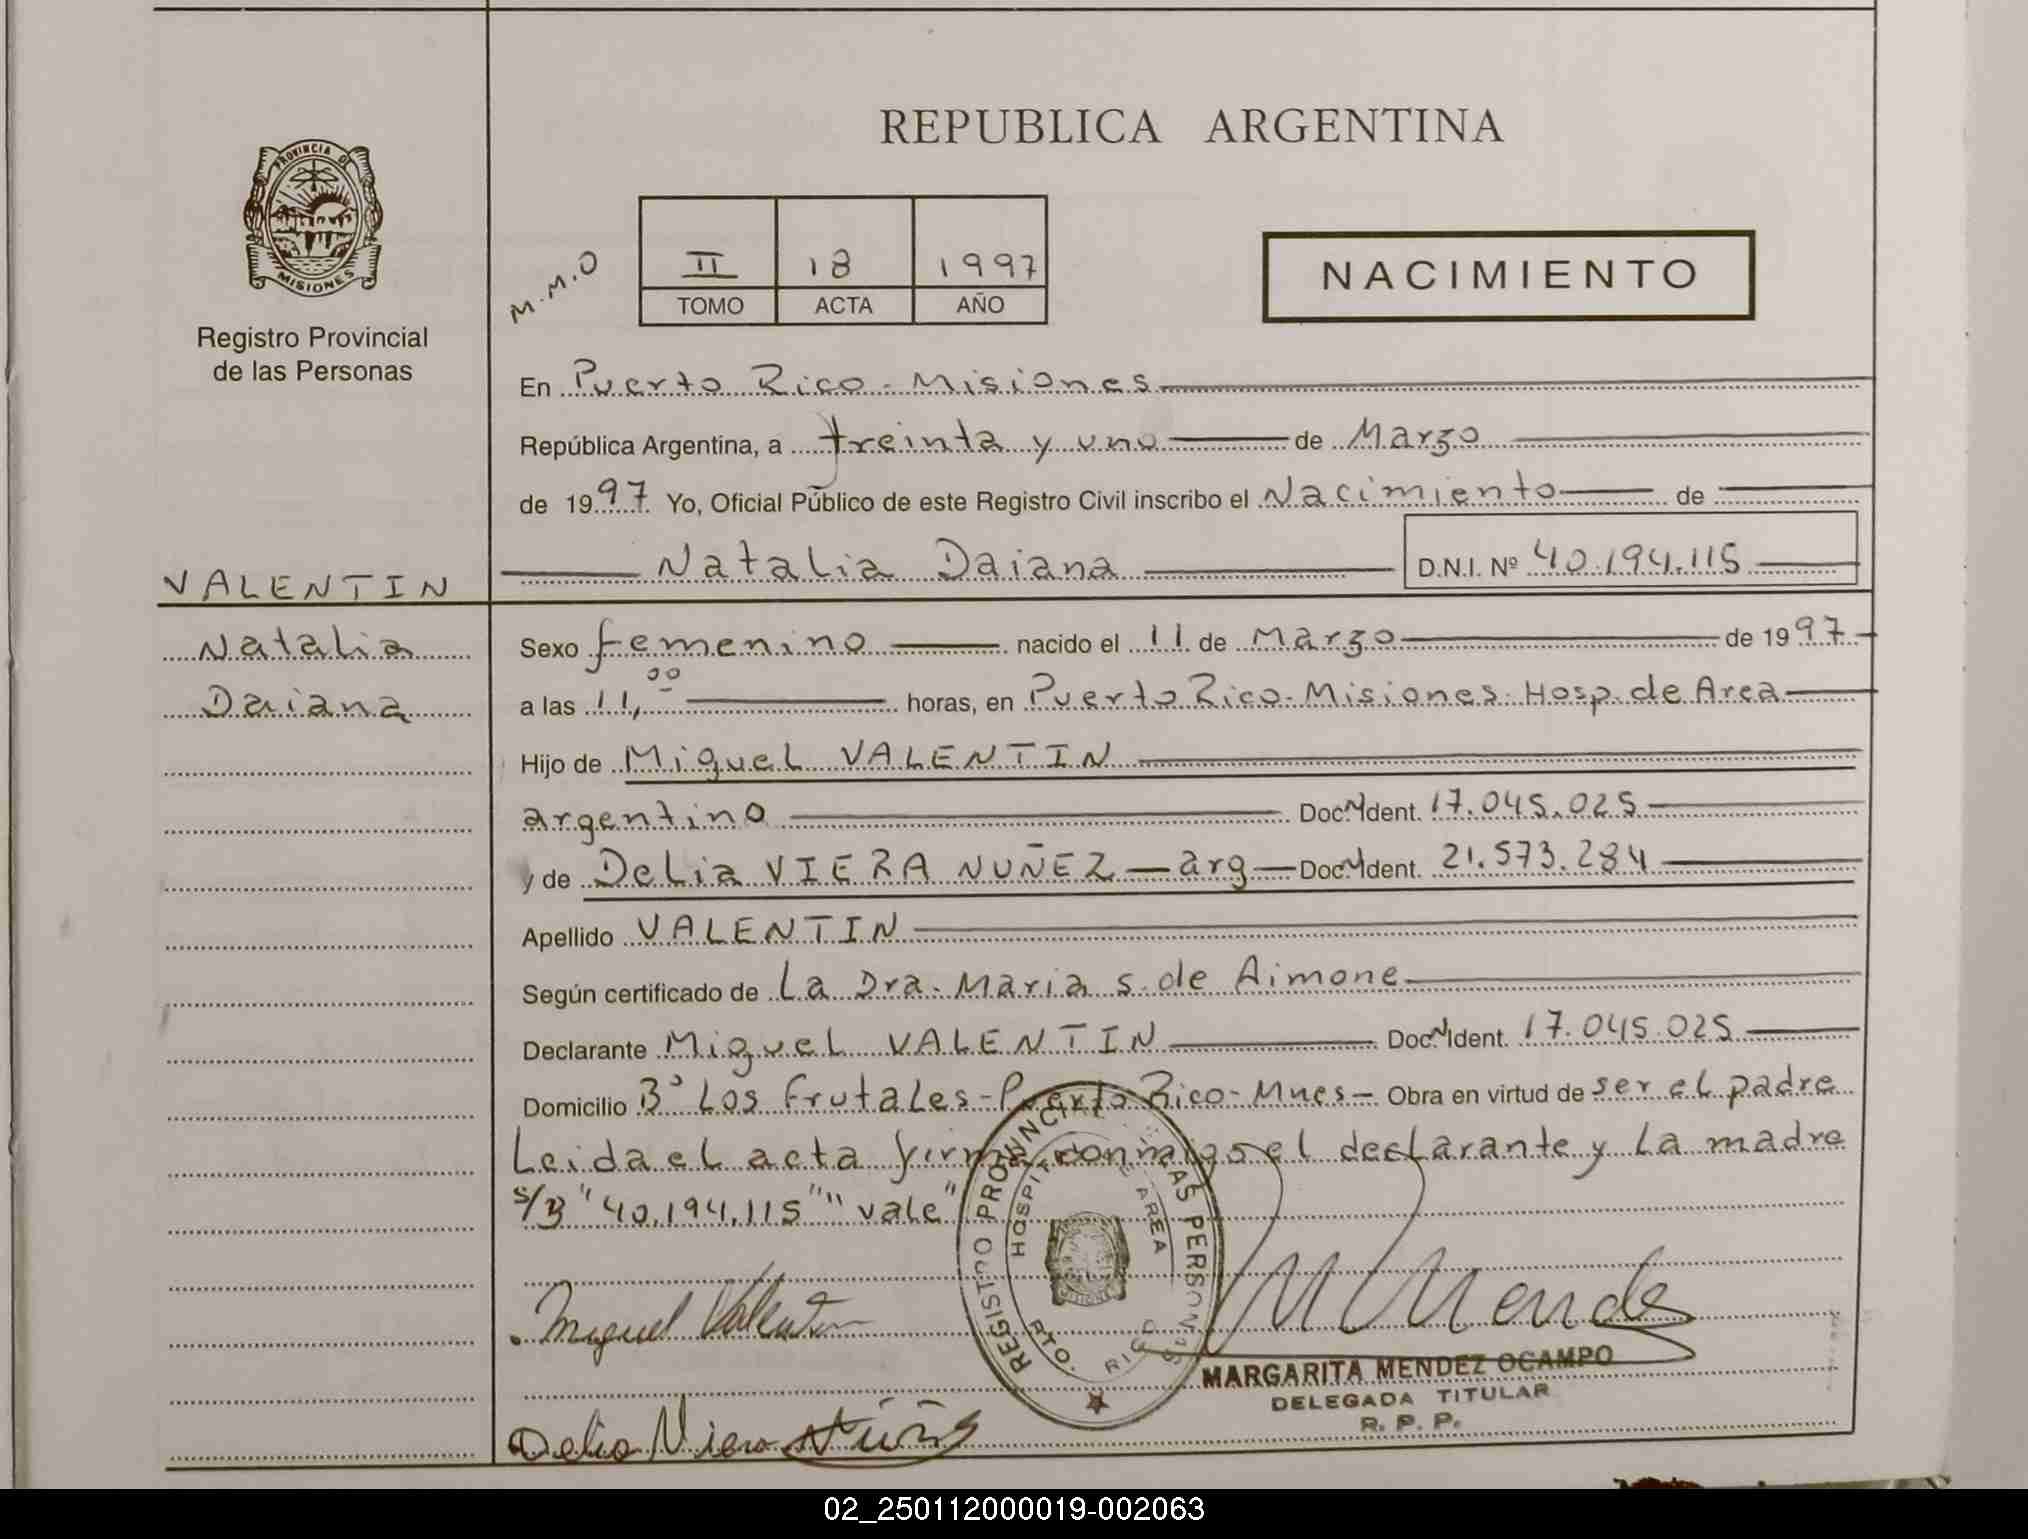 REPUBLICA ARGENTINA
PROVINCIA DE
MISIONES
Registro Provincial
de las Personas
M.M.O
II 18 1997
TOMO ACTA AÑO
NACIMIENTO
En Puerto Rico - Misiones
República Argentina, a treinta y uno de Marzo
de 1997 Yo, Oficial Público de este Registro Civil inscribo el Nacimiento de
Natalia Daiana D.N.I. Nº 40.194.115
VALENTIN
Natalia
Daiana
Sexo femenino nacido el 11 de Marzo de 1997
a las 11,00 horas, en Puerto Rico - Misiones - Hosp. de Area
Hijo de Miguel VALENTIN
argentino Doc. Ident. 17.045.025
y de Delia VIERA NUÑEZ - arg - Doc. Ident. 21.573.284
Apellido VALENTIN
Según certificado de La Dra. Maria S. de Aimone
Declarante Miguel VALENTIN Doc. Ident. 17.045.025
Domicilio Bº Los Frutales - Puerto Rico - Mnes - Obra en virtud de ser el padre
Leida el acta firma conmigo el declarante y La madre
s/B "40.194.115" "vale"
REGISTRO PROVINCIAL DE LAS PERSONAS
HOSPITAL DE AREA
PTO. RICO
Miguel Valentin
M Mendez
MARGARITA MENDEZ OCAMPO
DELEGADA TITULAR
R. P. P.
Delia Viera Núñez
02_250112000019-002063